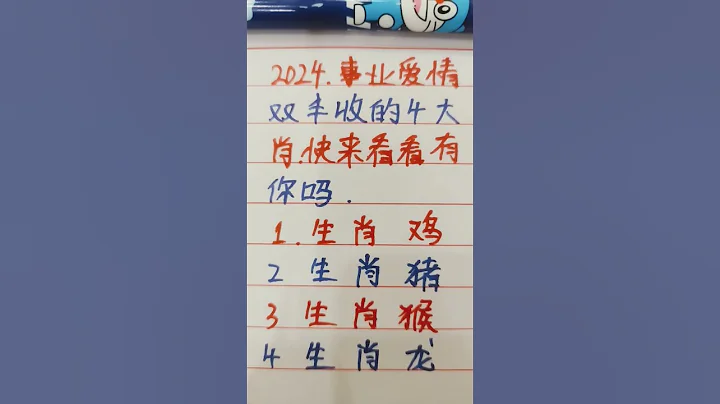 2024.事业爱情
双丰收的4大
肖.快来看看有
你吗.
1.生肖 鸡
2 生肖 猪
3 生肖 猴
4 生肖 龙